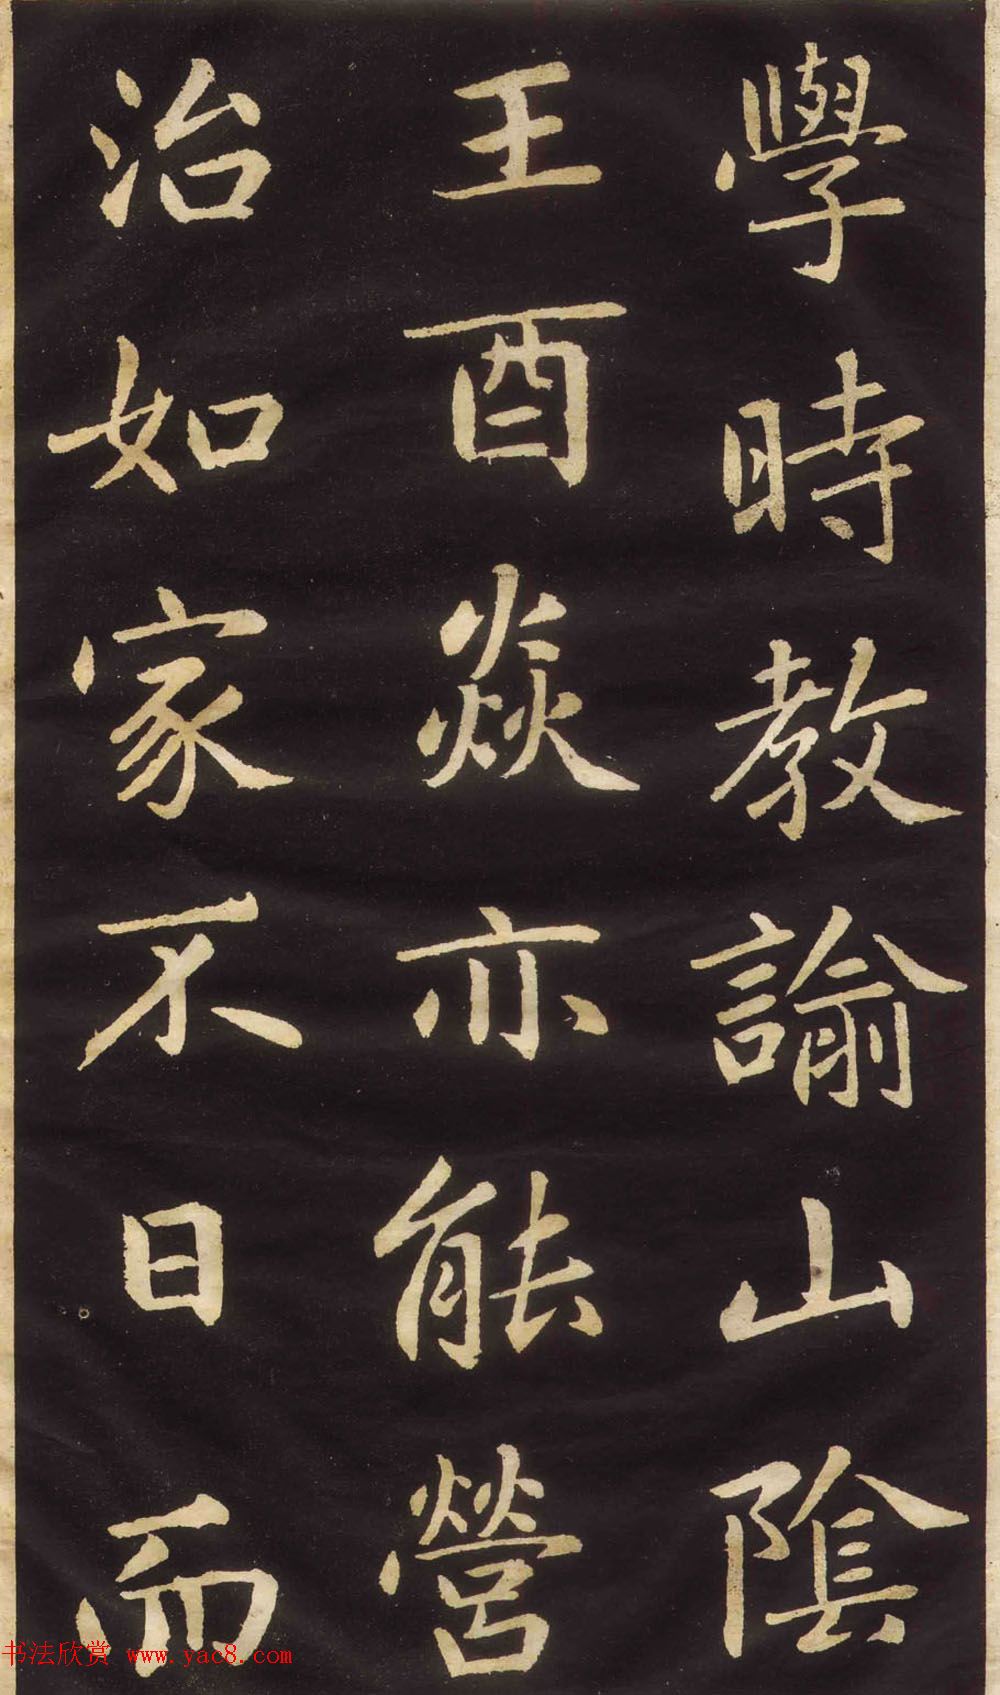 學時教諭山陰
王酉焱亦能營
治如家不日而
书法欣赏 www.yac8.com